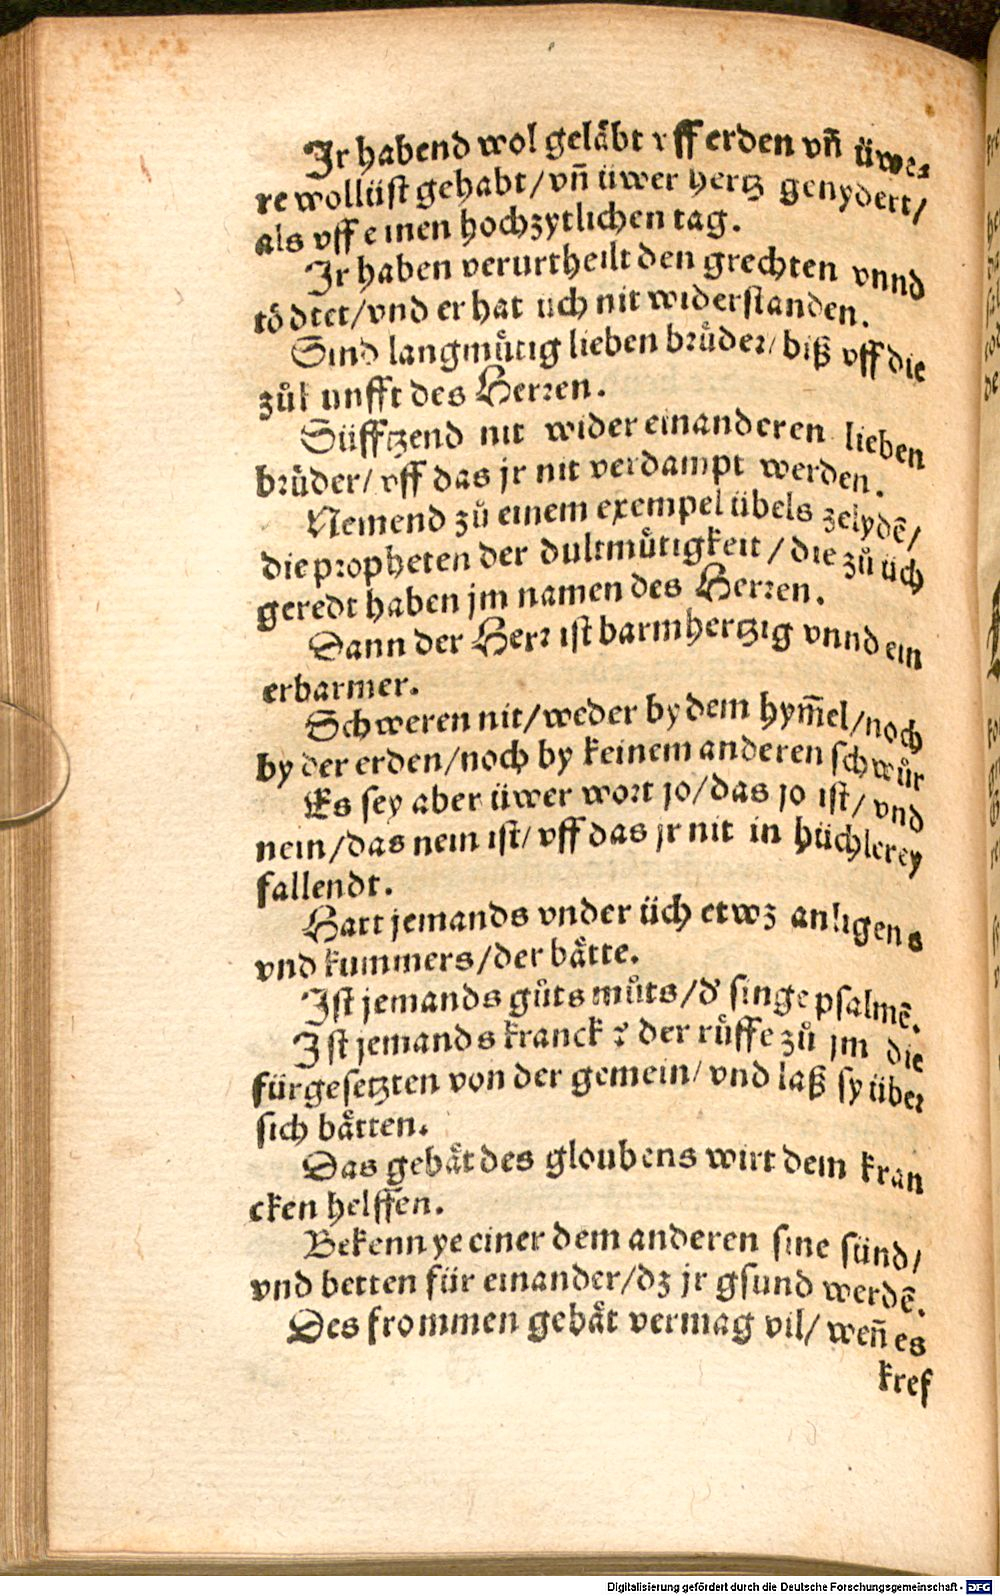 Jr habend wol geläbt vff erden vn̄ üwe⸗
re wollüst gehabt/vn̄ üwer hertz genydert/
als vff einen hochzytlichen tag.
Jr haben verurtheilt den grechten vnnd
tödtet/vnd er hat üch nit widerstanden.
Sind langmuͤtig lieben bruͤder/ biß vff die
zuͦkunfft des Herren.
Süfftzend nit wider einanderen lieben
bruͤder/ vff das jr nit verdampt werden.
Nemend zuͦ einem exempel übels zelydē/
die propheten der dultmuͤtigkeit / die zuͦ üch
geredt haben jm namen des Herren.
Dann der Herr ist barmhertzig vnnd ein
erbarmer.
Schweren nit/weder by dem hym̄el/noch
by der erden/noch by keinem anderen schwuͦr
Es sey aber üwer wort jo/das jo ist/ vnd
nein/das nein ist/ vff das jr nit in hüchlerey
fallendt.
Hatt jemands vnder üch etwz anligens
vnd kummers/der bätte.
Ist jemands guͦts muͦts/d' singe psalmē.
Ist jemands kranck? der ruͤffe zuͦ jm die
fürgesetzten von der gemein/ vnd laß sy über
sich bätten.
Das gebät des gloubens wirt dem kran
cken helffen.
Bekenn ye einer dem anderen sine sünd/
vnd betten für einander/dz jr gsund werdē.
Des frommen gebät vermag vil/ wen̄ es
kref
Digitalisierung gefördert durch die Deutsche Forschungsgemeinschaft - DFG